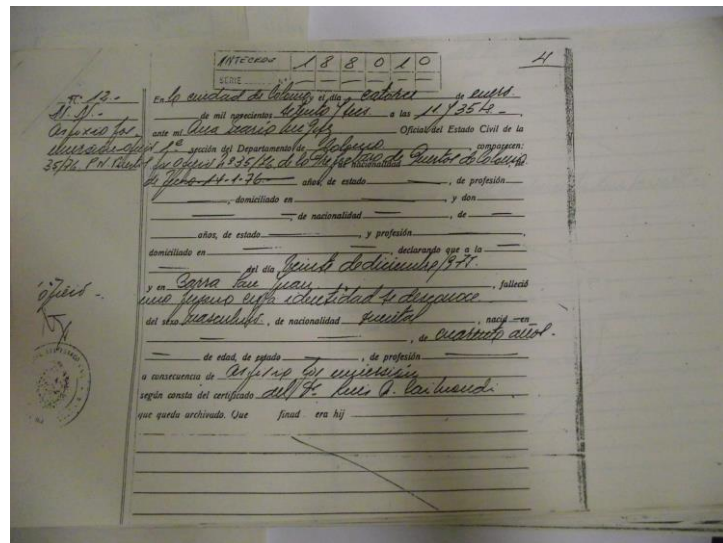 ANTECEDE 1 8 8 0 1 0
SERIE
4
Nº 12.-
N. N.-
Asfixia por
35/76. P.N. Puertos
En la ciudad de Colonia, el día catorce de enero
de mil novecientos setenta y seis a las 11 y 35 h.
ante mí Ana María Oficial del Estado Civil de la
1ª sección del Departamento de Colonia comparecen:
oficio nº 35/76 de la Prefectura de Puertos de Colonia
de fecha 14-1-76 años, de estado , de profesión
, domiciliado en y don
de nacionalidad , de
años, de estado , y profesión ,
domiciliado en , declarando que a la
del día veinte de diciembre/975.
y en Barra San Juan , falleció
una persona cuya identidad se desconoce
del sexo masculino, de nacionalidad , nació en
, de cuarenta años.
de edad, de estado , de profesión
a consecuencia de Asfixia por inmersión
según consta del certificado del Dr. Luis A. Raimondi.
que queda archivado. Que finad era hij